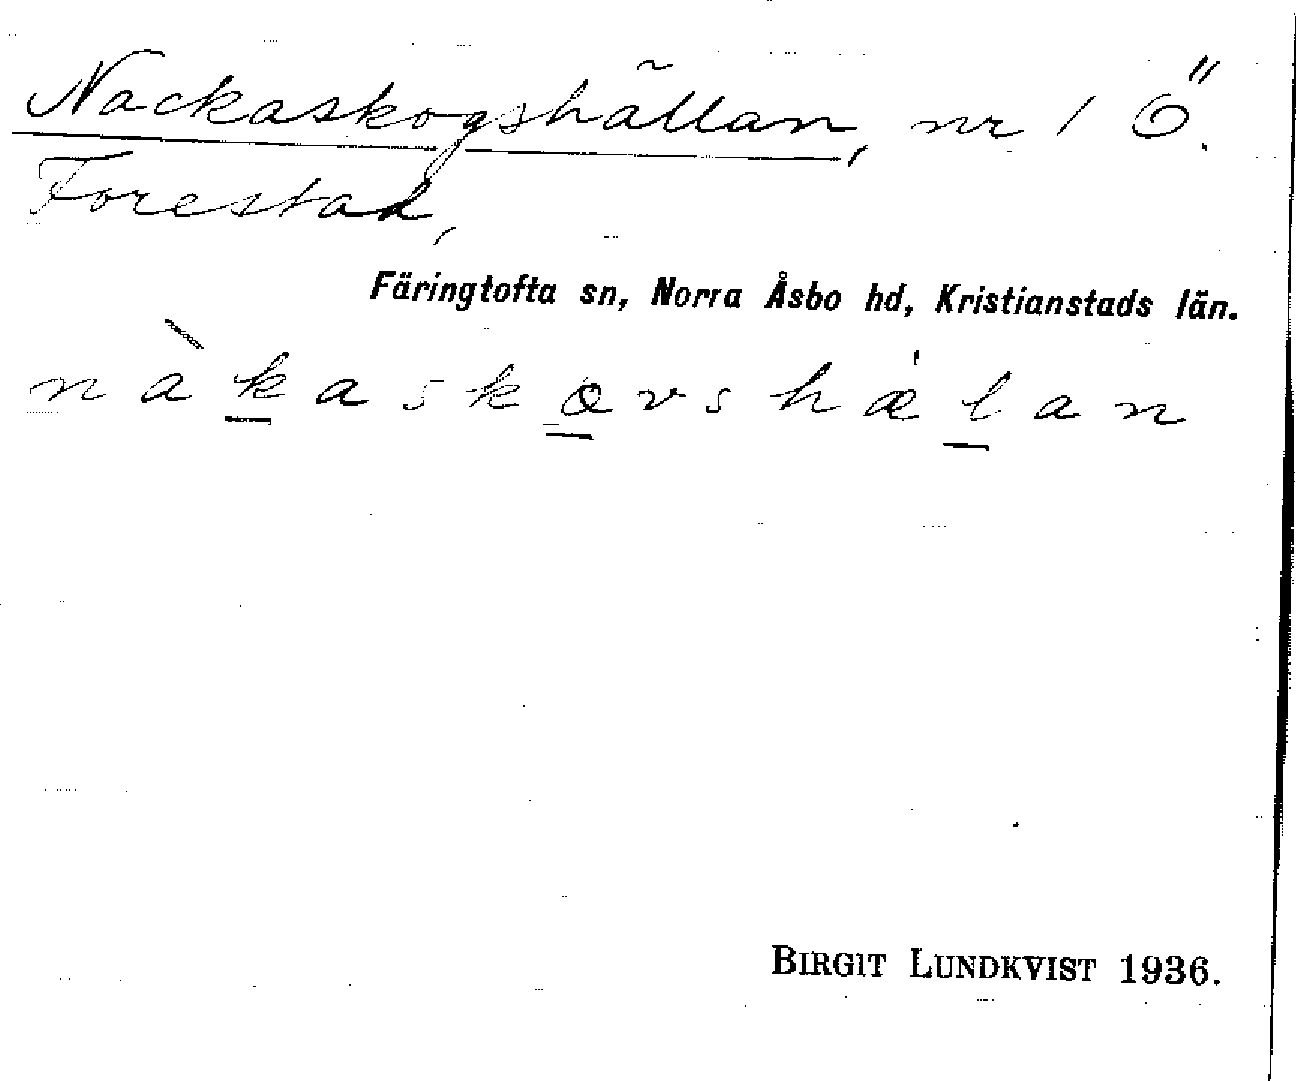 Nackaskogshällan, nr 1 Ö.
Forestad,
Färingtofta sn, Norra Åsbo hd, Kristianstads län.
nàkaskovshæ'lan
BIRGIT LUNDKVIST 1936.